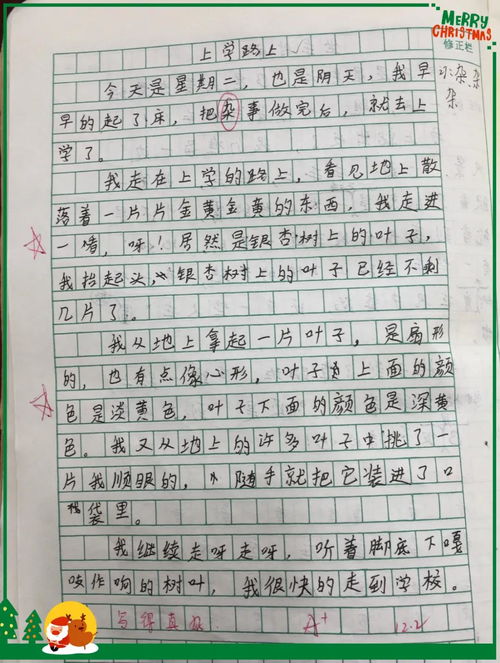 MERRY
CHRISTMAS
修正栏
上学路上
今天是星期二，也是阴天，我早
小:杂杂
杂
早的起了床，把杂事做完后，就去上
学了。
我走在上学的路上，看见地上散
落着一片片金黄金黄的东西，我走进
一啃，呀！居然是银杏树上的叶子，
我抬起头，银杏树上的叶子已经不剩
几片了。
我从地上拿起一片叶子，是扇形
的，也有点像心形，叶子上面的颜
色是淡黄色，叶子下面的颜色是深黄
色。我又从地上的许多叶子中挑了一
片我顺眼的，随手就把它装进了口
袋里。
我继续走呀走呀，听着脚底下嘎
吱作响的树叶，我很快的走到学校。
写得真
A+
12.2